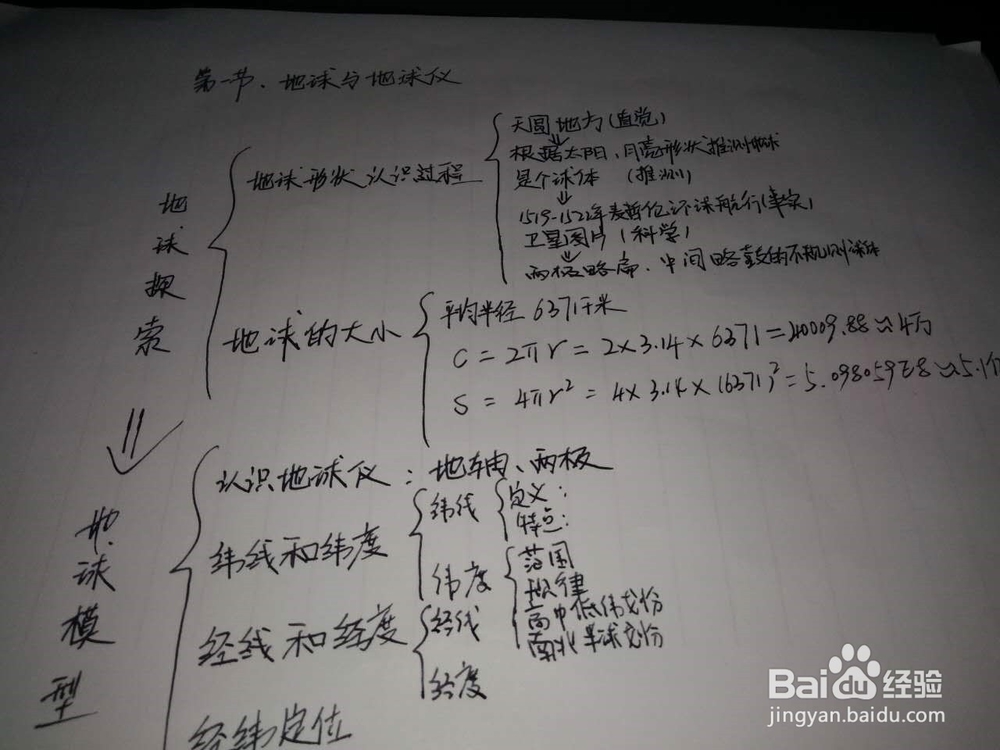 第一节、地球与地球仪
地球探索
地球形状认识过程
天圆地方(直觉)
根据太阳、月亮形状推测地球
是个球体 (推测)
1519-1522年麦哲伦环球航行(事实)
卫星图片 (科学)
两极略扁、中间略鼓的不规则球体
地球的大小
平均半径 6371千米
C = 2πr = 2×3.14×6371 = 40009.88≈4万
S = 4πr² = 4×3.14×(6371)² = 5.098059E8≈5.1亿
地球模型
认识地球仪：地轴、两极
纬线和纬度
纬线
定义：
特点：
纬度
范围
规律
高中低纬划份
南北半球划份
经线和经度
经线
经度
经纬定位
Baidu经验
jingyan.baidu.com